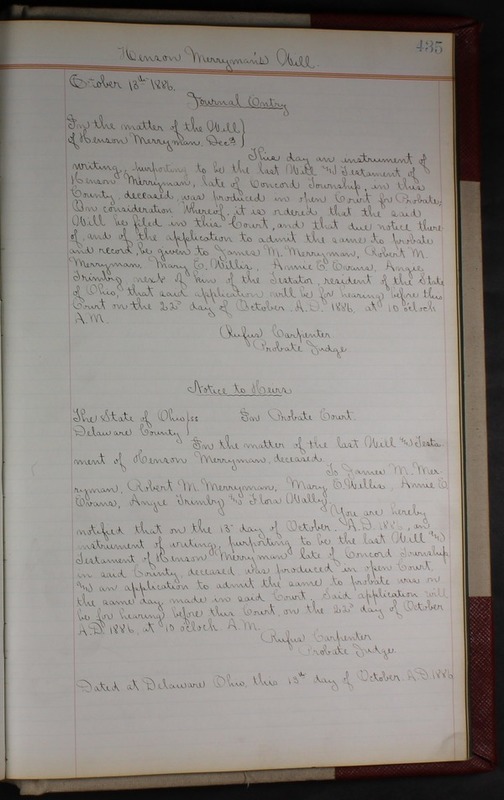 435
Henson Merryman's Will.
October 13th 1886.
Journal Entry
In the matter of the Will)
of Henson Merryman, Decd)
This day an instrument of
writing, purporting to be the last Will & Testament of
Henson Merryman, late of Concord Township, in this
County, deceased, was produced in open Court for Probate;
On consideration thereof, it is ordered, that the said
Will be filed in this Court, and that due notice there
of, and of the application to admit the same to probate
and record, be given to James M. Merryman, Robert M.
Merryman, Mary E. Willis, Annie E. Evans, Angie
Trimby next of kin of the Testator, resident of the State
of Ohio, that said application will be for hearing before this
Court on the 22d day of October A.D. 1886, at 10 o'clock
A.M.
Rufus Carpenter
Probate Judge
Notice to Heirs
The State of Ohio) ss In Probate Court.
Delaware County)
In the matter of the last Will & Testa-
ment of Henson Merryman, deceased.
To James M. Mer-
ryman, Robert M. Merryman, Mary E. Willis, Annie E.
Evans, Angie Trimby & Flora Wally
You are hereby
notified that on the 13th day of October A.D. 1886, an
instrument of writing, purporting to be the last Will &
Testament of Henson Merryman, late of Concord Township,
in said County, deceased, was produced in open Court
& an application to admit the same to probate was on
the same day made in said Court. Said application will
be for hearing before this Court on the 22d day of October
A.D. 1886, at 10 o'clock A.M.
Rufus Carpenter
Probate Judge.
Dated at Delaware Ohio, this 13th day of October A.D. 1886